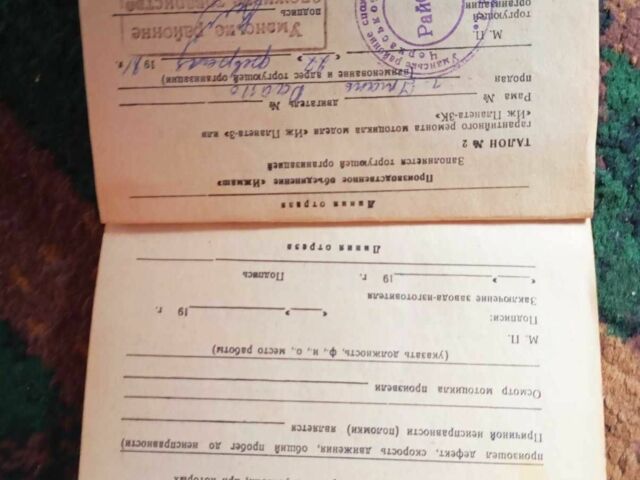 при которых
произошел дефект, скорость движения, общий пробег до неисправности)
Причиной неисправности (поломки) является
Осмотр мотоцикла произвели
(указать должность, ф., и., о., место работы)
М. П.
Подписи:
« » 19 г.
Заключение завода-изготовителя
« » 19 г. Подпись
Линия отреза
Линия отреза
Производственное объединение «Ижмаш»
Заполняется торгующей организацией
ТАЛОН № 2
гарантийного ремонта мотоцикла модели «Иж Планета-3» или
«Иж Планета-3К»
Рама № двигатель №
продан г. Умань Райпо
(наименование и адрес торгующей организации)
« 27 » февраля 19 81
М. П.
торгующей
организации
подпись
Уманське районне
Рай